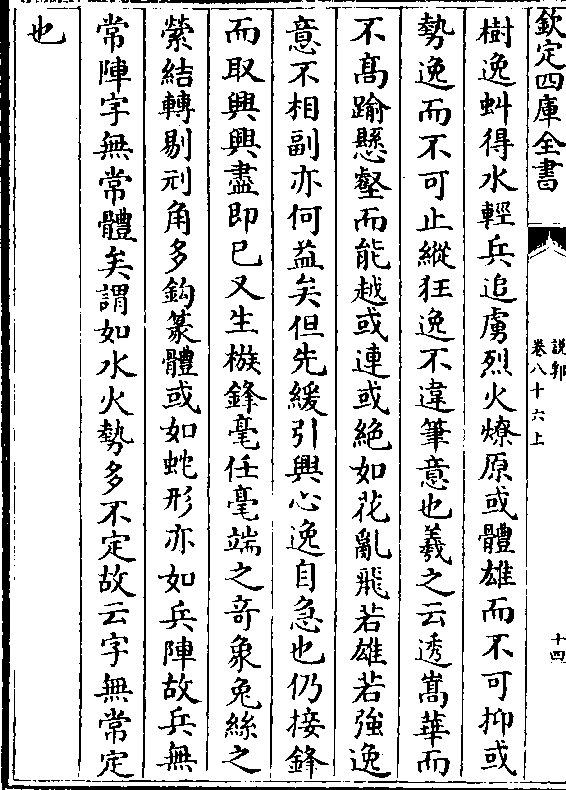 欽定四庫全書
說郛
卷八十六上
十四
樹逸虯得水輕兵追虜烈火燎原或體雄而不可抑或
勢逸而不可止縱狂逸不違筆意也羲之云透嵩華而
不高踰懸壑而能越或連或絕如花亂飛若雄若強逸
意不相副亦何益矣但先緩引興心逸自急也仍接鋒
而取興興盡即已又生櫢鋒毫任毫端之奇象兔絲之
縈結轉剔刓角多鈎篆體或如蛇形亦如兵陣故兵無
常陣字無常體矣謂如水火勢多不定故云字無常定
也